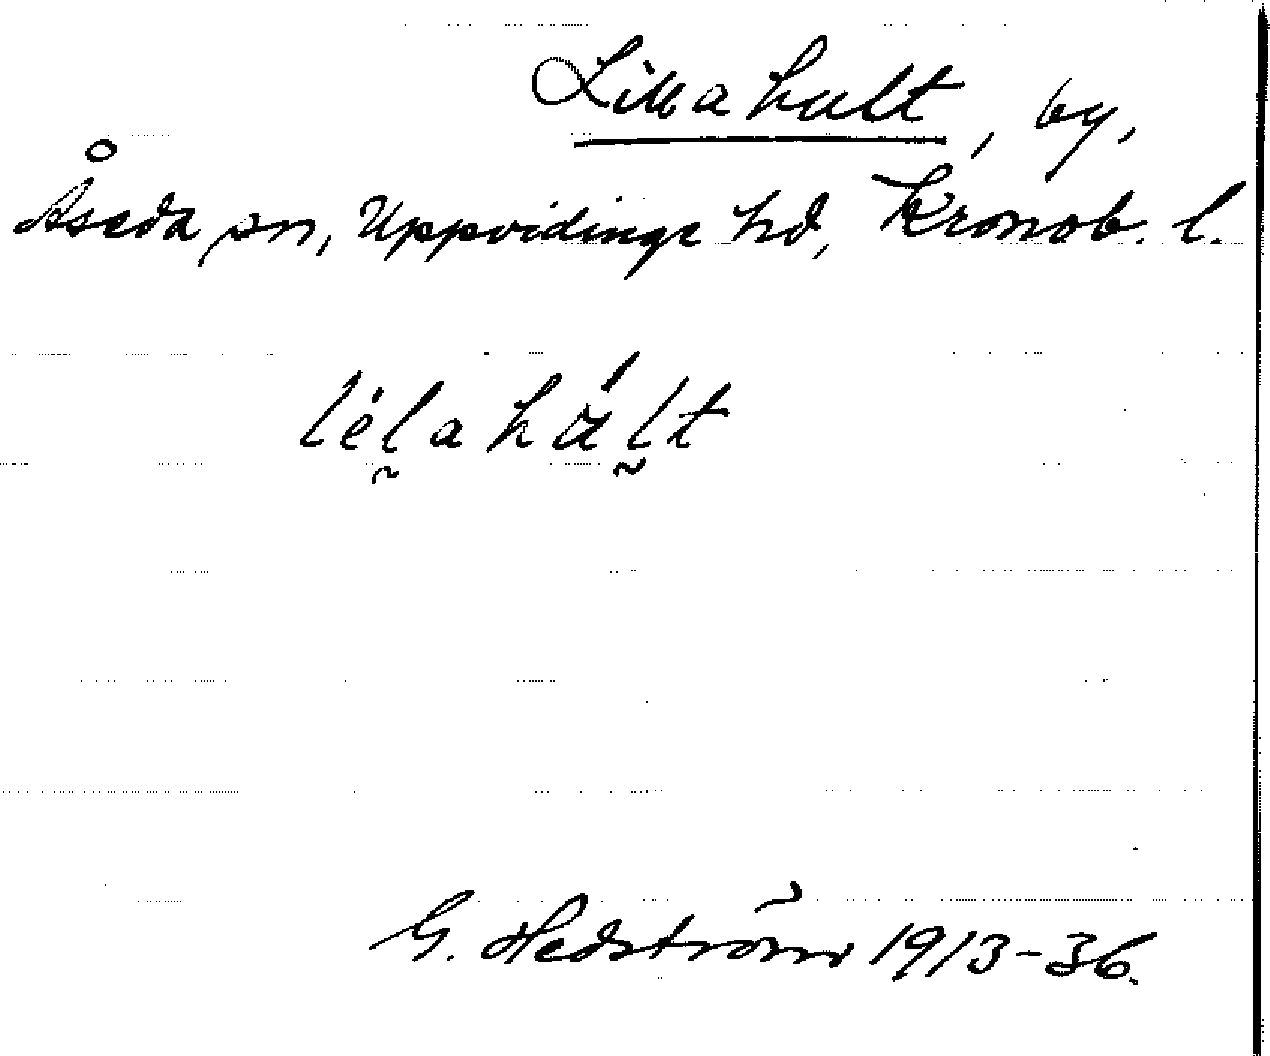 Lillahult, by,
Åseda sn, Uppvidinge hd, Kronob. l.
lėl̰ahál̰t
G. Hedström 1913-36.